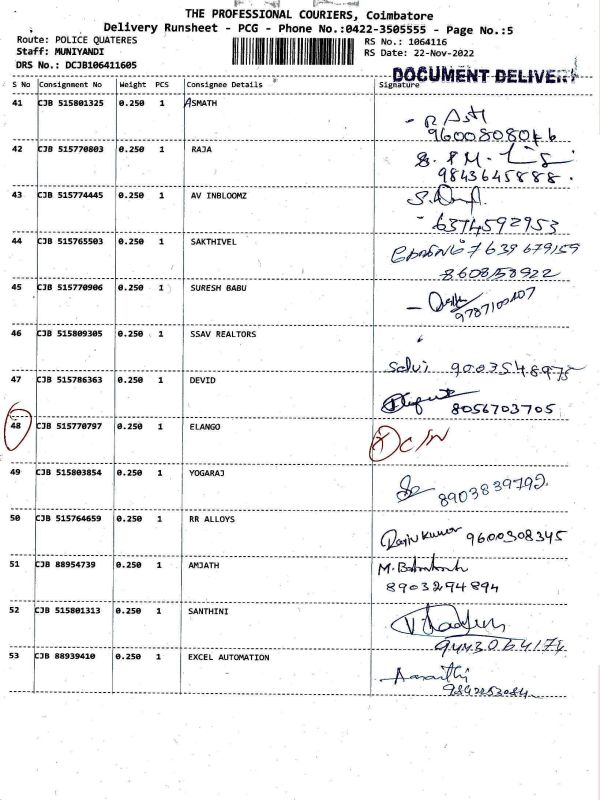 THE PROFESSIONAL COURIERS, Coimbatore
Delivery Runsheet - PCG - Phone No.:0422-3505555 - Page No.:5
Route: POLICE QUATERES
RS No.: 1064116
Staff: MUNIYANDI
RS Date: 22-Nov-2022
DRS No.: DCJB106411605
DOCUMENT DELIVERY
S No Consignment No Weight PCS Consignee Details Signature
41 CJB 515801325 0.250 1 ASMATH
9600808046
42 CJB 515770803 0.250 1 RAJA
9843645888.
43 CJB 515774445 0.250 1 AV INBLOOMZ
- 6374592953
44 CJB 515765503 0.250 1 SAKTHIVEL
7639679159
8608158922
45 CJB 515770906 0.250 1 SURESH BABU
9787100407
46 CJB 515809305 0.250 1 SSAV REALTORS
Selvi 9003548975
47 CJB 515786363 0.250 1 DEVID
8056703705
48 CJB 515770797 0.250 1 ELANGO
X C/N
49 CJB 515803854 0.250 1 YOGARAJ
8903839792.
50 CJB 515764659 0.250 1 RR ALLOYS
Rajiv Kumar 9600308345
51 CJB 88954739 0.250 1 AMJATH
8903294894
52 CJB 515801313 0.250 1 SANTHINI
9443064174
53 CJB 88939410 0.250 1 EXCEL AUTOMATION